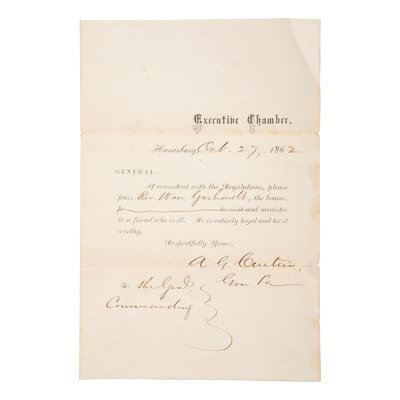 Executive Chamber.
Harrisburg, Oct. 27, 1862
GENERAL:
If consistent with the Regulations, please
pass Rev. Wm. Gerhardt, the bearer,
to visit and minister
to a friend who is ill. He is entirely legal and trust
worthy.
Respectfully Yours,
A. G. Curtin,
Gov Pa
To the Genl.
Commanding